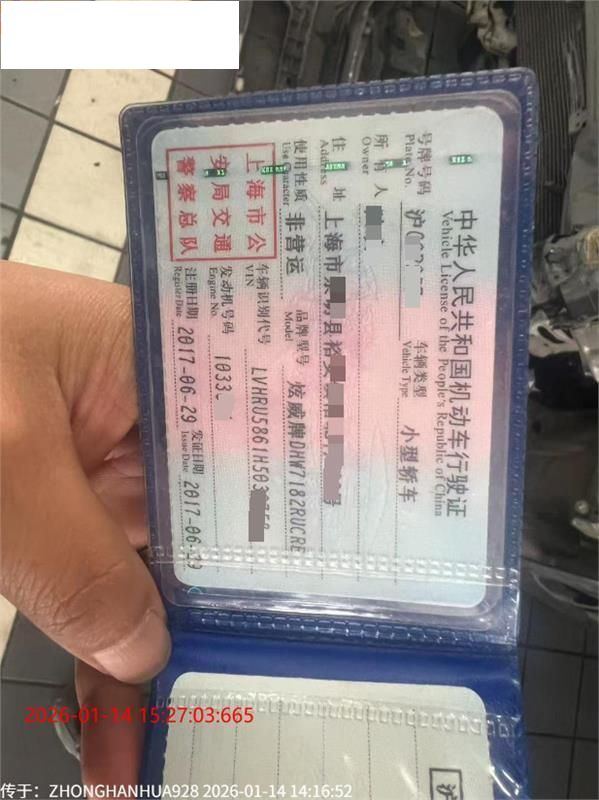 中华人民共和国机动车行驶证
Vehicle License of the People's Republic of China
号牌号码 沪C 车辆类型 小型轿车
Plate No. Vehicle Type
所有人
Owner
住址 上海市 县裕
Address
使用性质 非营运 品牌型号 炫威牌DHW7182RUCRE
Use Character Model
上海市公
安局交通
警察总队
车辆识别代号 LVHRU5861H503
VIN
发动机号码 1033
Engine No.
注册日期 2017-06-29 发证日期 2017-06-29
Register Date Issue Date
沪
2026-01-14 15:27:03:665
传于：ZHONGHANHUA928 2026-01-14 14:16:52